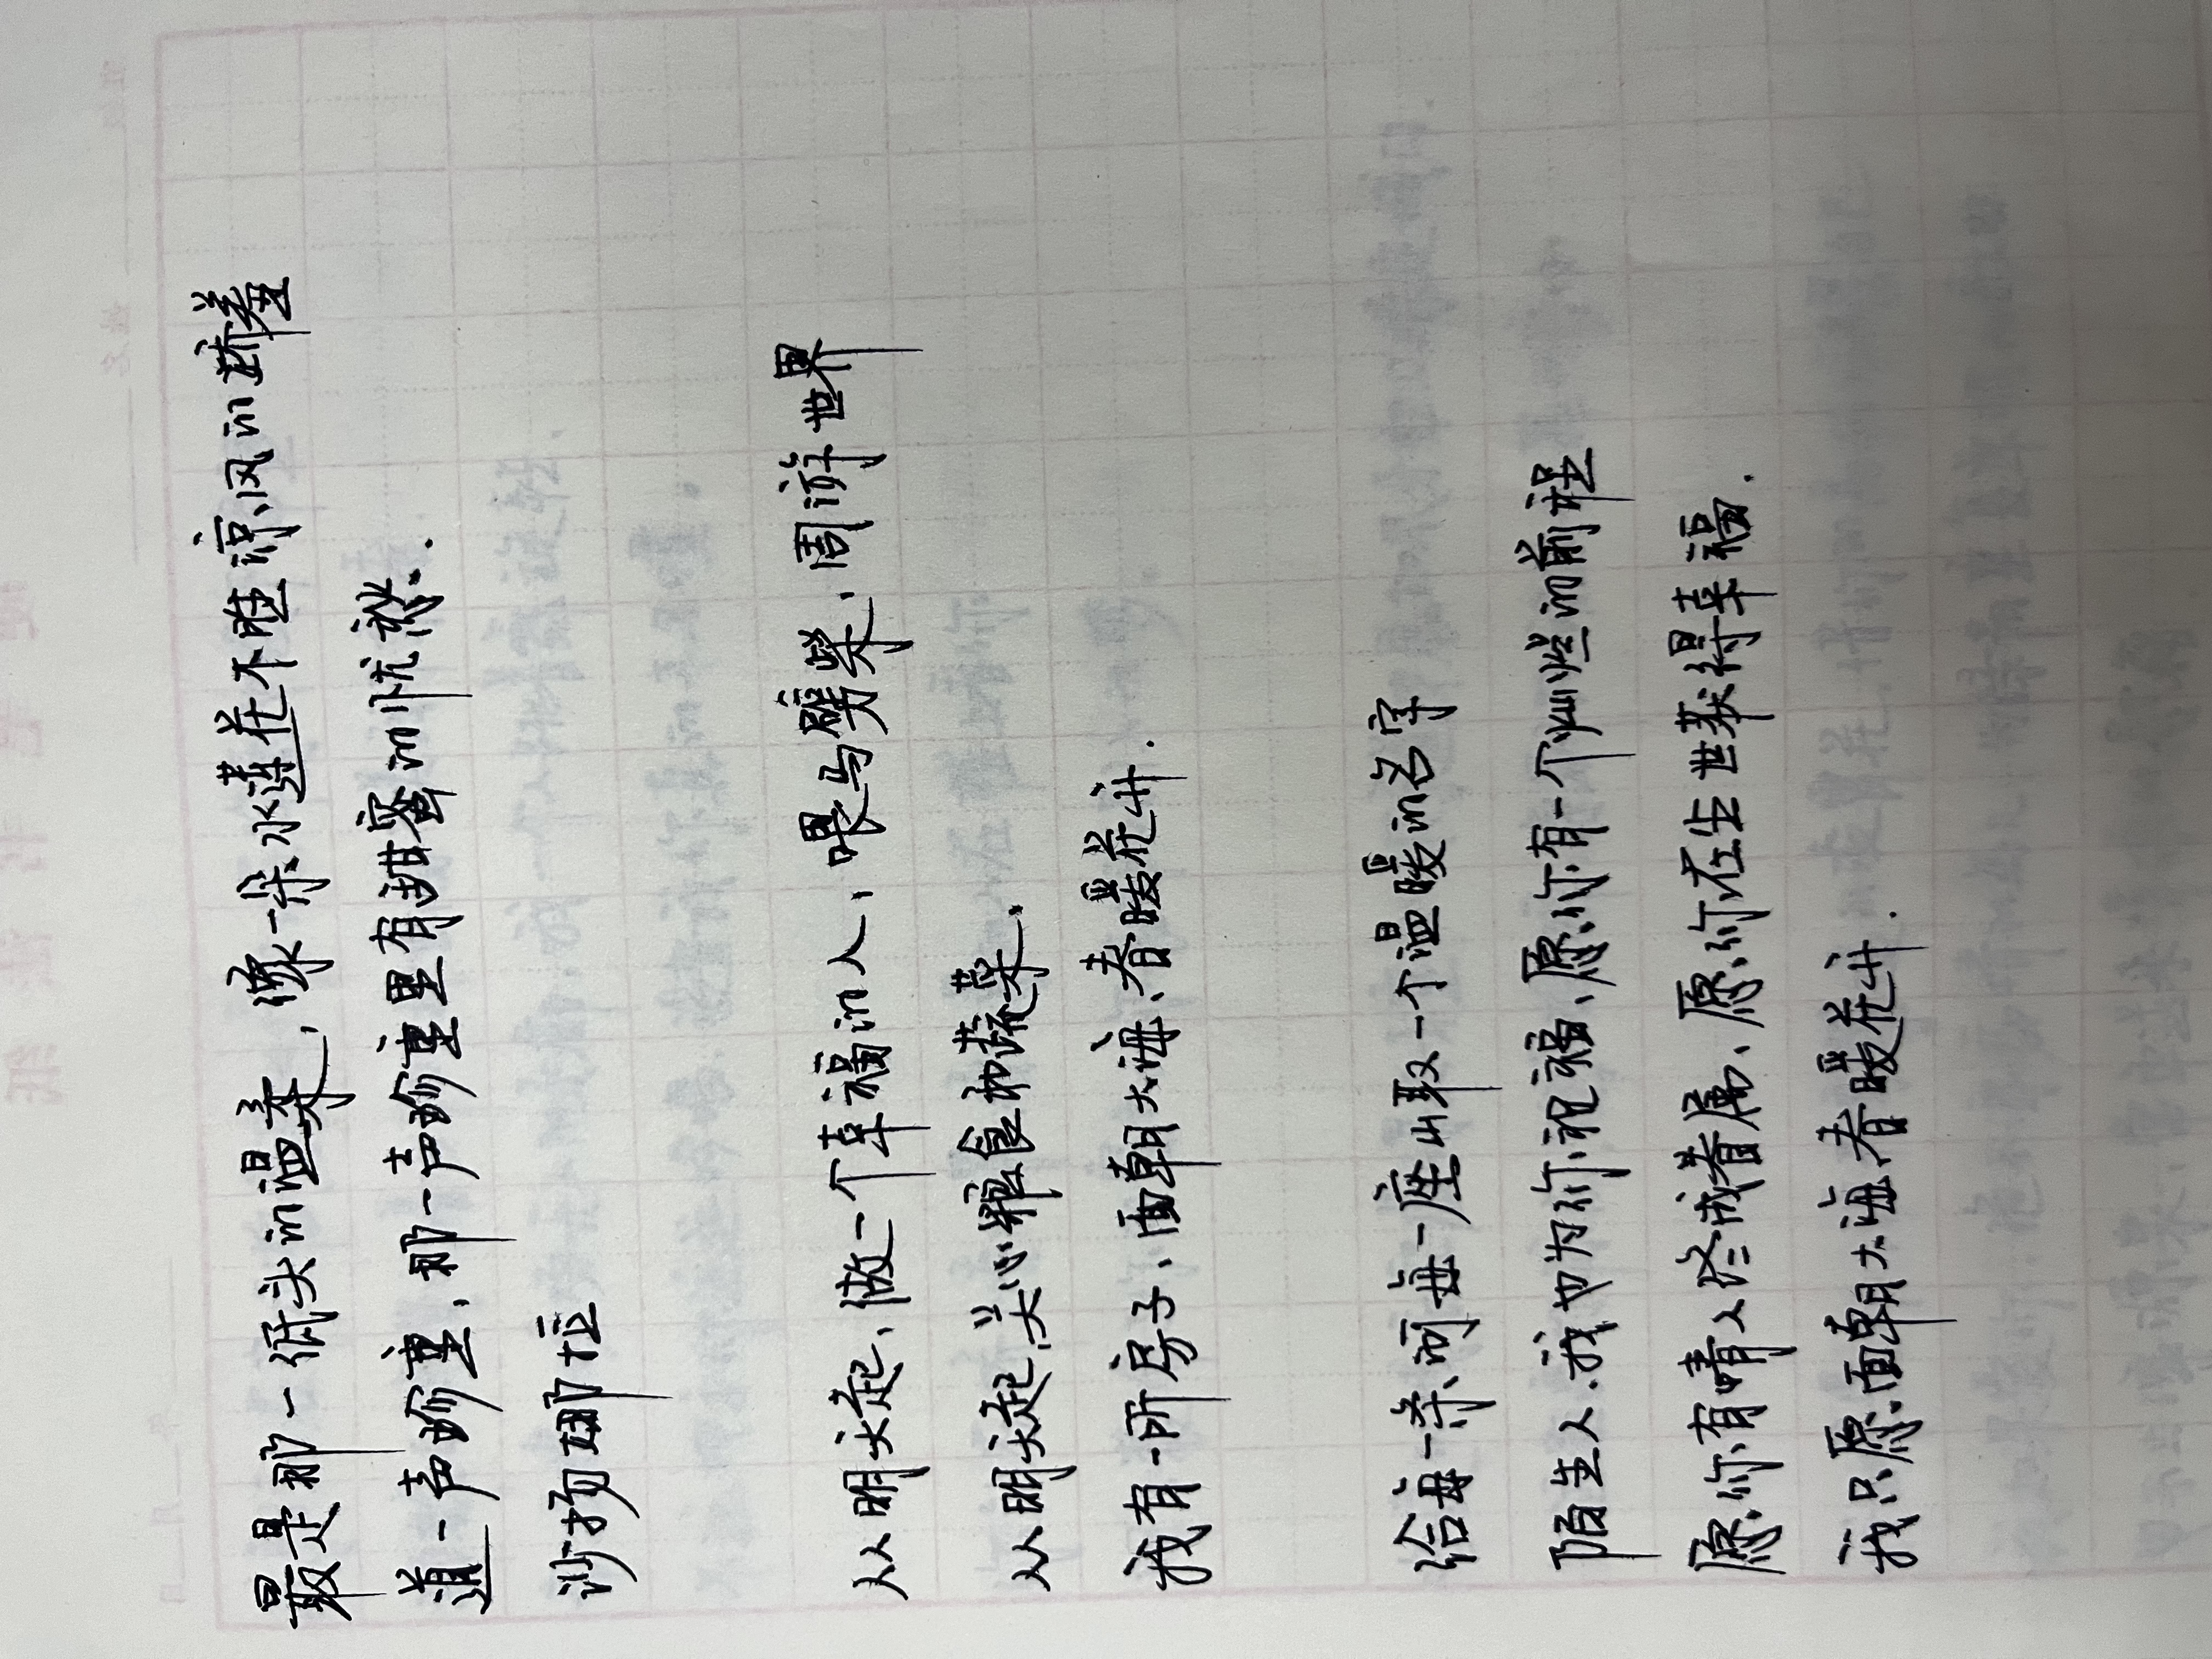 最是那一低头的温柔，像一朵水莲花不胜凉风的娇羞
道一声珍重，那一声珍重里有甜蜜的忧愁.
沙扬娜拉
从明天起、做一个幸福的人、喂马劈柴、周游世界
从明天起、关心粮食和蔬菜.
我有一所房子、面朝大海、春暖花开.
给每一条河每一座山取一个温暖的名字
陌生人.我也为你祝福、愿你有一个灿烂的前程
愿你有情人终成眷属、愿你在尘世获得幸福.
我只愿面朝大海、春暖花开.